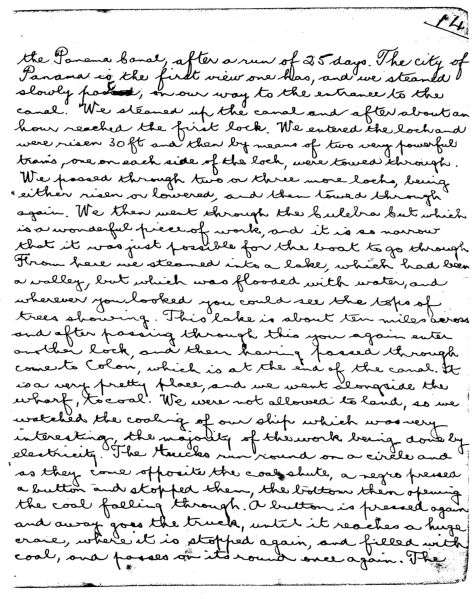 14
the Panama Canal, after a run of 25 days. The city of
Panama is the first view one has, and we steamed
slowly past, on our way to the entrance to the
canal. We steamed up the canal and after about an
hour reached the first lock. We entered the lock and
were risen 30 ft and then by means of two very powerful
trams, one on each side of the lock, were towed through.
We passed through two or three more locks, being
either risen or lowered, and then towed through
again. We then went through the Culebra Cut which
is a wonderful piece of work, and it is so narrow
that it was just possible for the boat to go through
From here we steamed into a lake, which had been
a valley, but which was flooded with water, and
wherever you looked you could see the tops of
trees showing. This lake is about ten miles across
and after passing through this you again enter
another lock, and then having passed through
come to Colon, which is at the end of the canal. It
is a very pretty place, and we went alongside the
wharf, to coal. We were not allowed to land, so we
watched the coaling of our ship which was very
interesting, the majority of the work being done by
electricity. The trucks run round on a circle and
as they come opposite the coal shute, a negro pressed
a button and stopped them, the bottom then opening
the coal falling through. A button is pressed again
and away goes the truck, until it reaches a huge
crane, where it is stopped again, and filled with
coal, and passes on its round once again. The